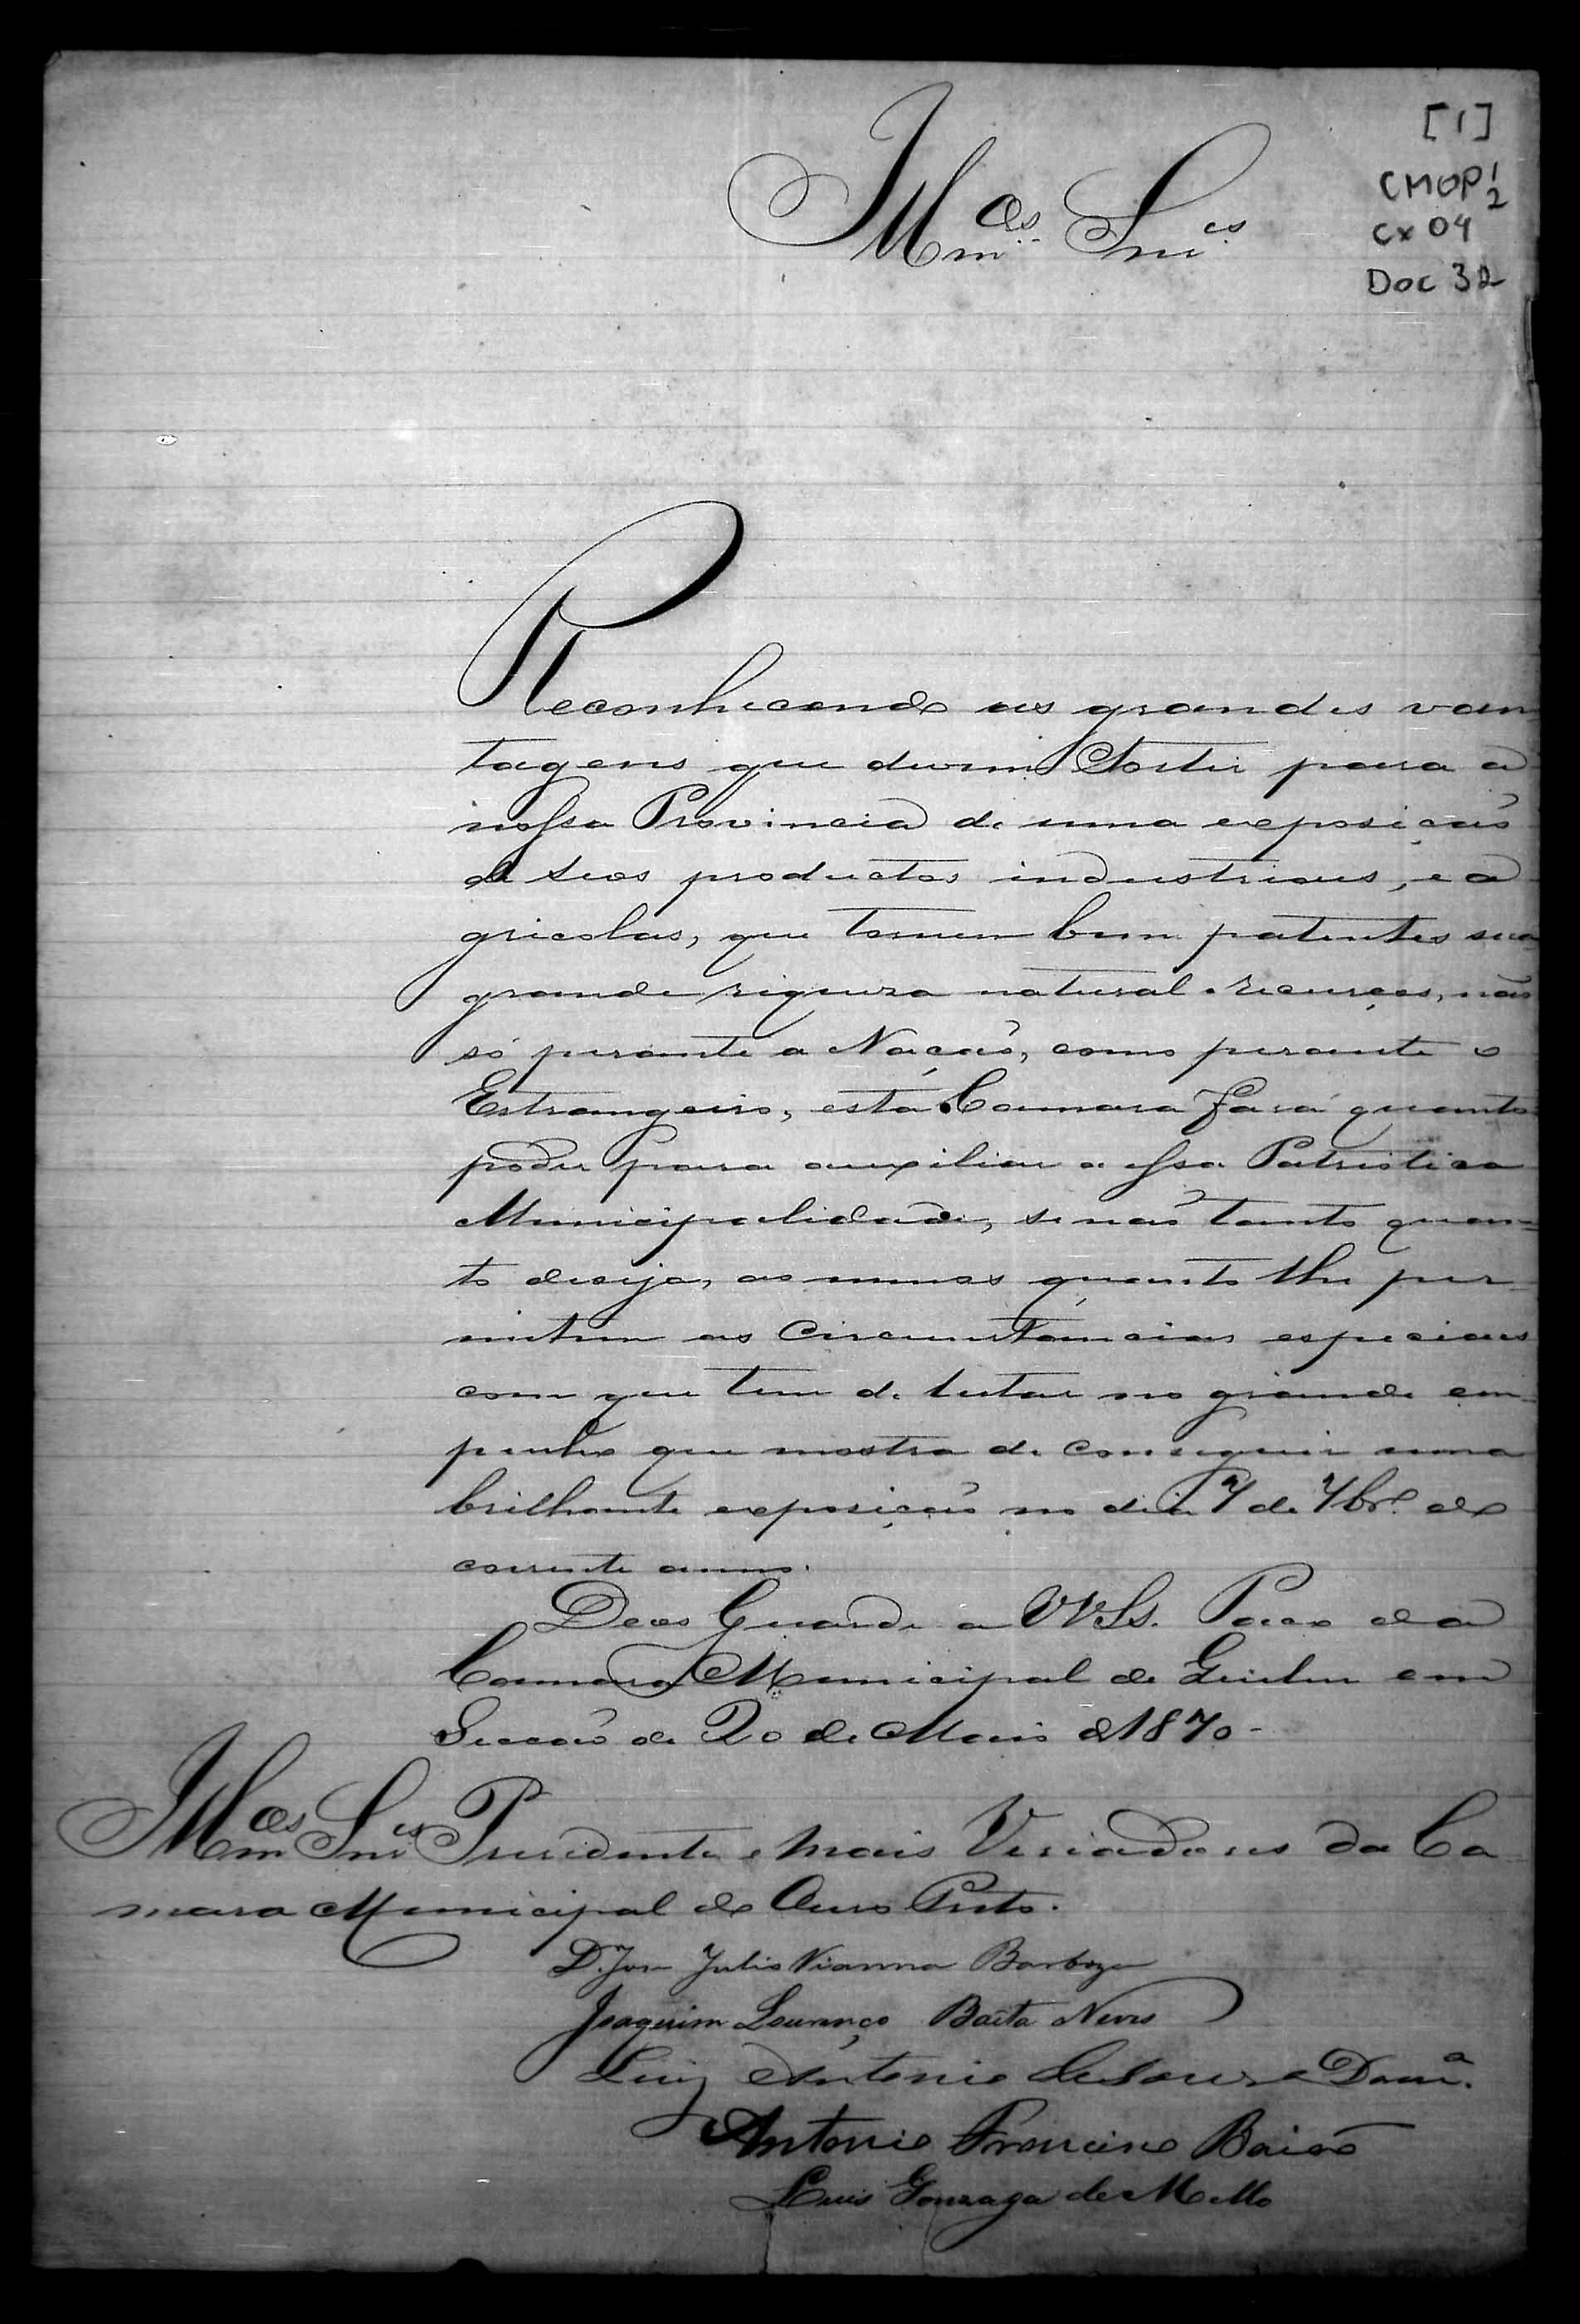 [1]
CMOP 1/2
Cx 04
Doc 32
Illmos Snres
Reconhecendo as grandes van
tagens que devem para a
nossa Provincia de uma exposição
de seos productos industriaes, e a
gricolas, que tornem bem patentes sua
grande riqueza natural e recurços, não
só perante a Nação, como perante o
Estrangeiro, esta Camara fará quanto
poder para auxiliar a essa Patriotica
Municipalidade, se não tanto quan=
to deseja, ao menos quanto lhe per
mittem as Circunstancias especiaes
com que tem de luctar no grande em
penho que mostra de conseguir uma
brilhante exposição no dia 7 de 7bro do
corrente anno.
Deos Guarde a VVSs. Paço da
Camara Municipal de em
Secção de 20 de Maio d 1870-
Illmos Snres Presidente e mais Veriadores da Ca
mara Municipal do Ouro Preto.
D. José Julio Vianna Barboza
Joaquim Lourenço Baêta Neves
Luiz Antonio de Souza
Antonio Francisco Baião
Luis Gonzaga de Mello